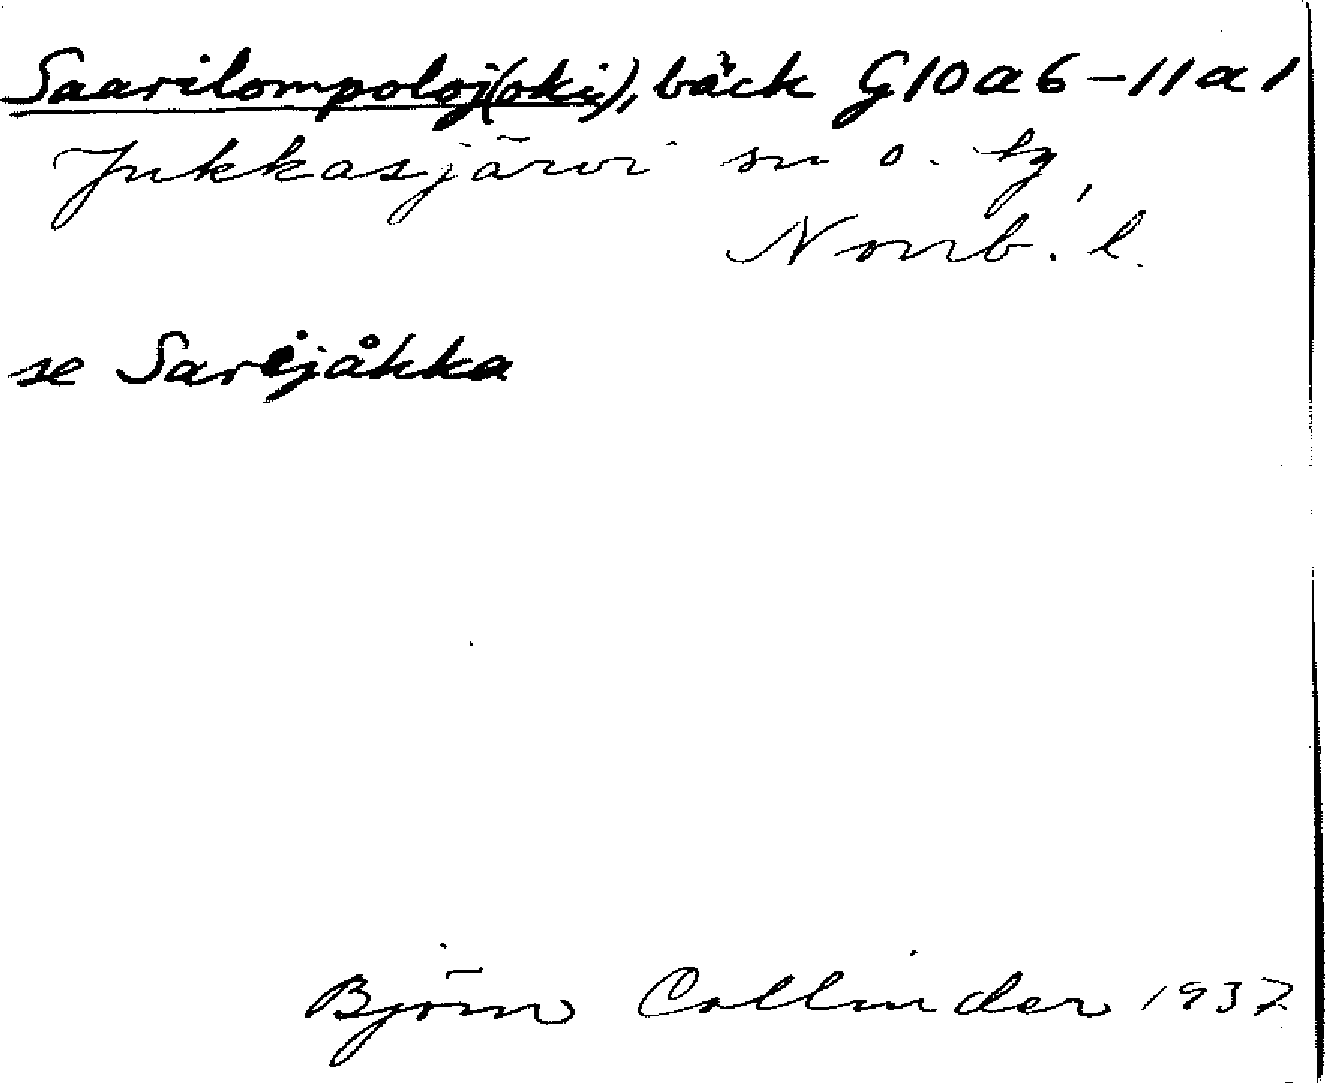 Saarilompoloj(oki), bäck G10a6-11a1
Jukkasjärvi sn o. tg,
Norrb. l.
se Sarejåkka
Björn Collinder 1937